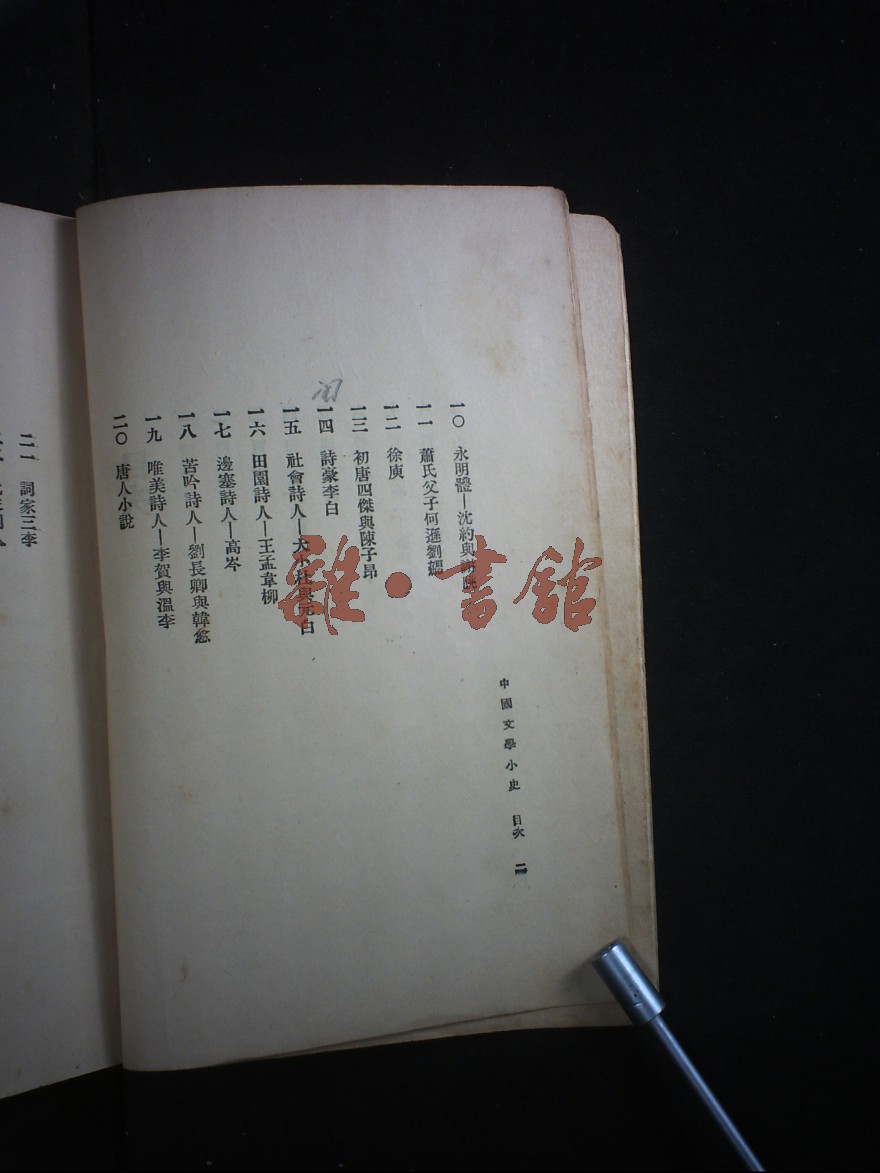 中國文學小史 目次 二
一〇 永明體—沈約與謝脁
一一 蕭氏父子何遜劉鑠
一二 徐庾
一三 初唐四傑與陳子昂
一四 詩豪李白
一五 社會詩人—大小杜與元白
一六 田園詩人—王孟韋柳
一七 邊塞詩人—高岑
一八 苦吟詩人—劉長卿與韓愈
一九 唯美詩人—李賀與溫李
二〇 唐人小說
二一 詞家三李
雜·書館